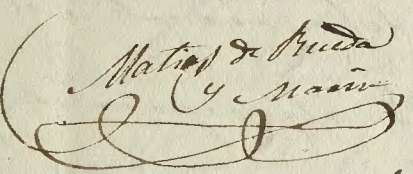 Matias de Rueda
y Marin